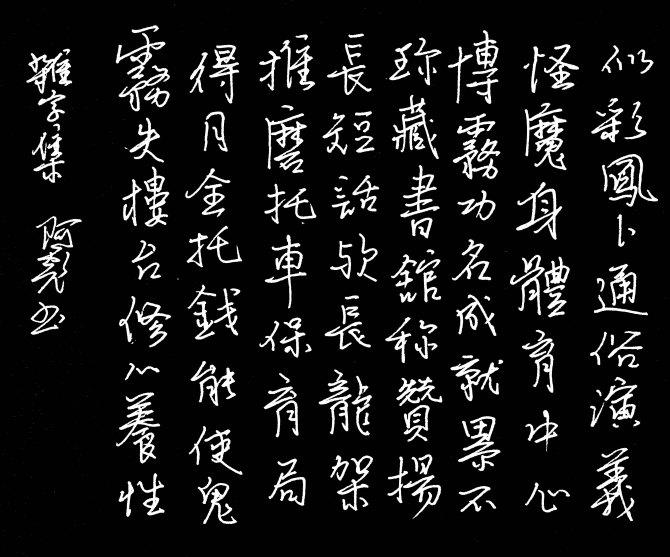 似彩鳳卜通俗演義
怪魔身體育中心
博霧功名成就累不
珍藏書館称贊揚
長短話欤長龍架
推磨托車保育局
得月全托錢能使鬼
霧失樓台修心養性
難字集 阿堯书